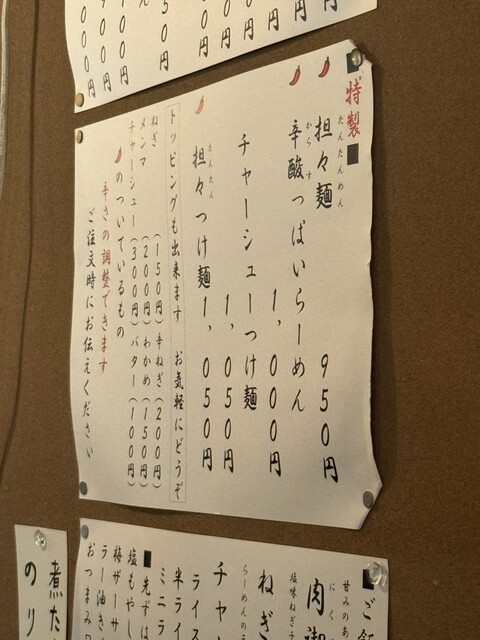 ■特製■
担々麺 950円
たんたんめん
辛酸っぱいらーめん
からす
1,000円
チャーシューつけ麺
1,050円
担々つけ麺 1,050円
たんたん めん
トッピングも出来ます お気軽にどうぞ
ねぎ (150円) 辛ねぎ (200円)
メンマ (200円) わかめ (150円)
チャーシュー (300円) バター (100円)
のついているもの
辛さの調整できます
ご注文時にお伝えください
■ご飯
甘みのあ
にく
肉
塩味ねぎチ
ねぎ
らーめんの
チャー
ライス
半ライ
ミニラ
■先ずは
塩もやし
梅ザーサ
ラー油き
おつまみ
煮た
のり